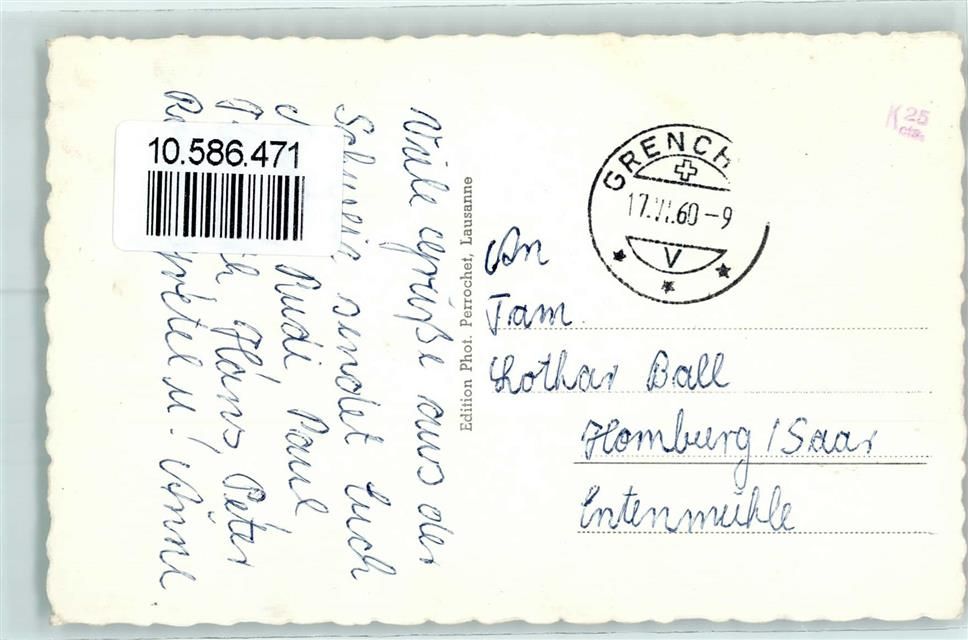 Viele Grüße aus der
Schweiz sendet Euch
Rudi, Paul
Hans, Peter
Gretel u. Änne
10.586.471
Edition Phot. Perrochet, Lausanne
GRENCH
17.VI.60-9
V
K 25
An
Fam.
Lothar Ball
Homburg/Saar
Entenmühle